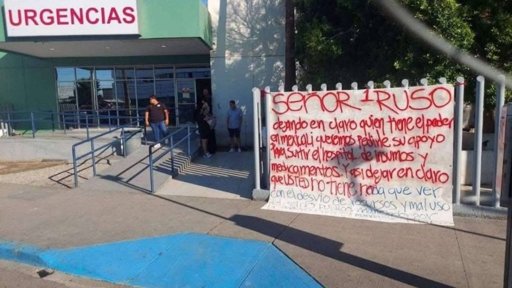 URGENCIAS
SEÑOR 1 RUSO
dejando en claro quien tiene el poder
en mexicali queremos pedirle su apoyo
Para surtir el hospital de insumos y
medicamentos y asi dejar en claro
que USTED no tiene nada que ver
con el desvio de recursos y mal uso